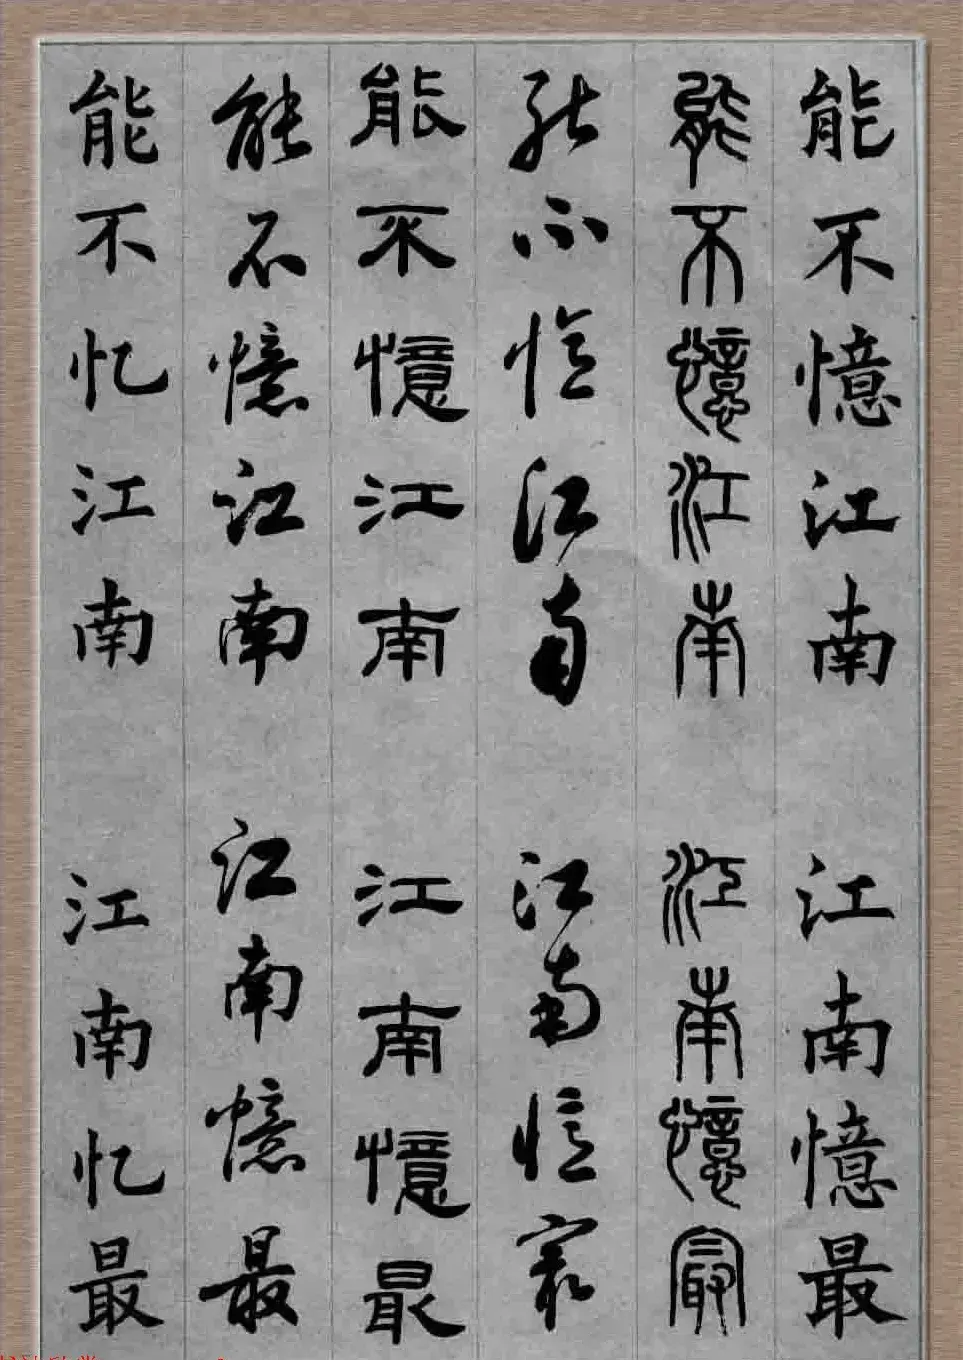 能不憶江南 江南憶最
能不憶江南 江南憶最
能不憶江南 江南憶最
能不憶江南 江南憶最
能不憶江南 江南憶最
能不忆江南 江南忆最